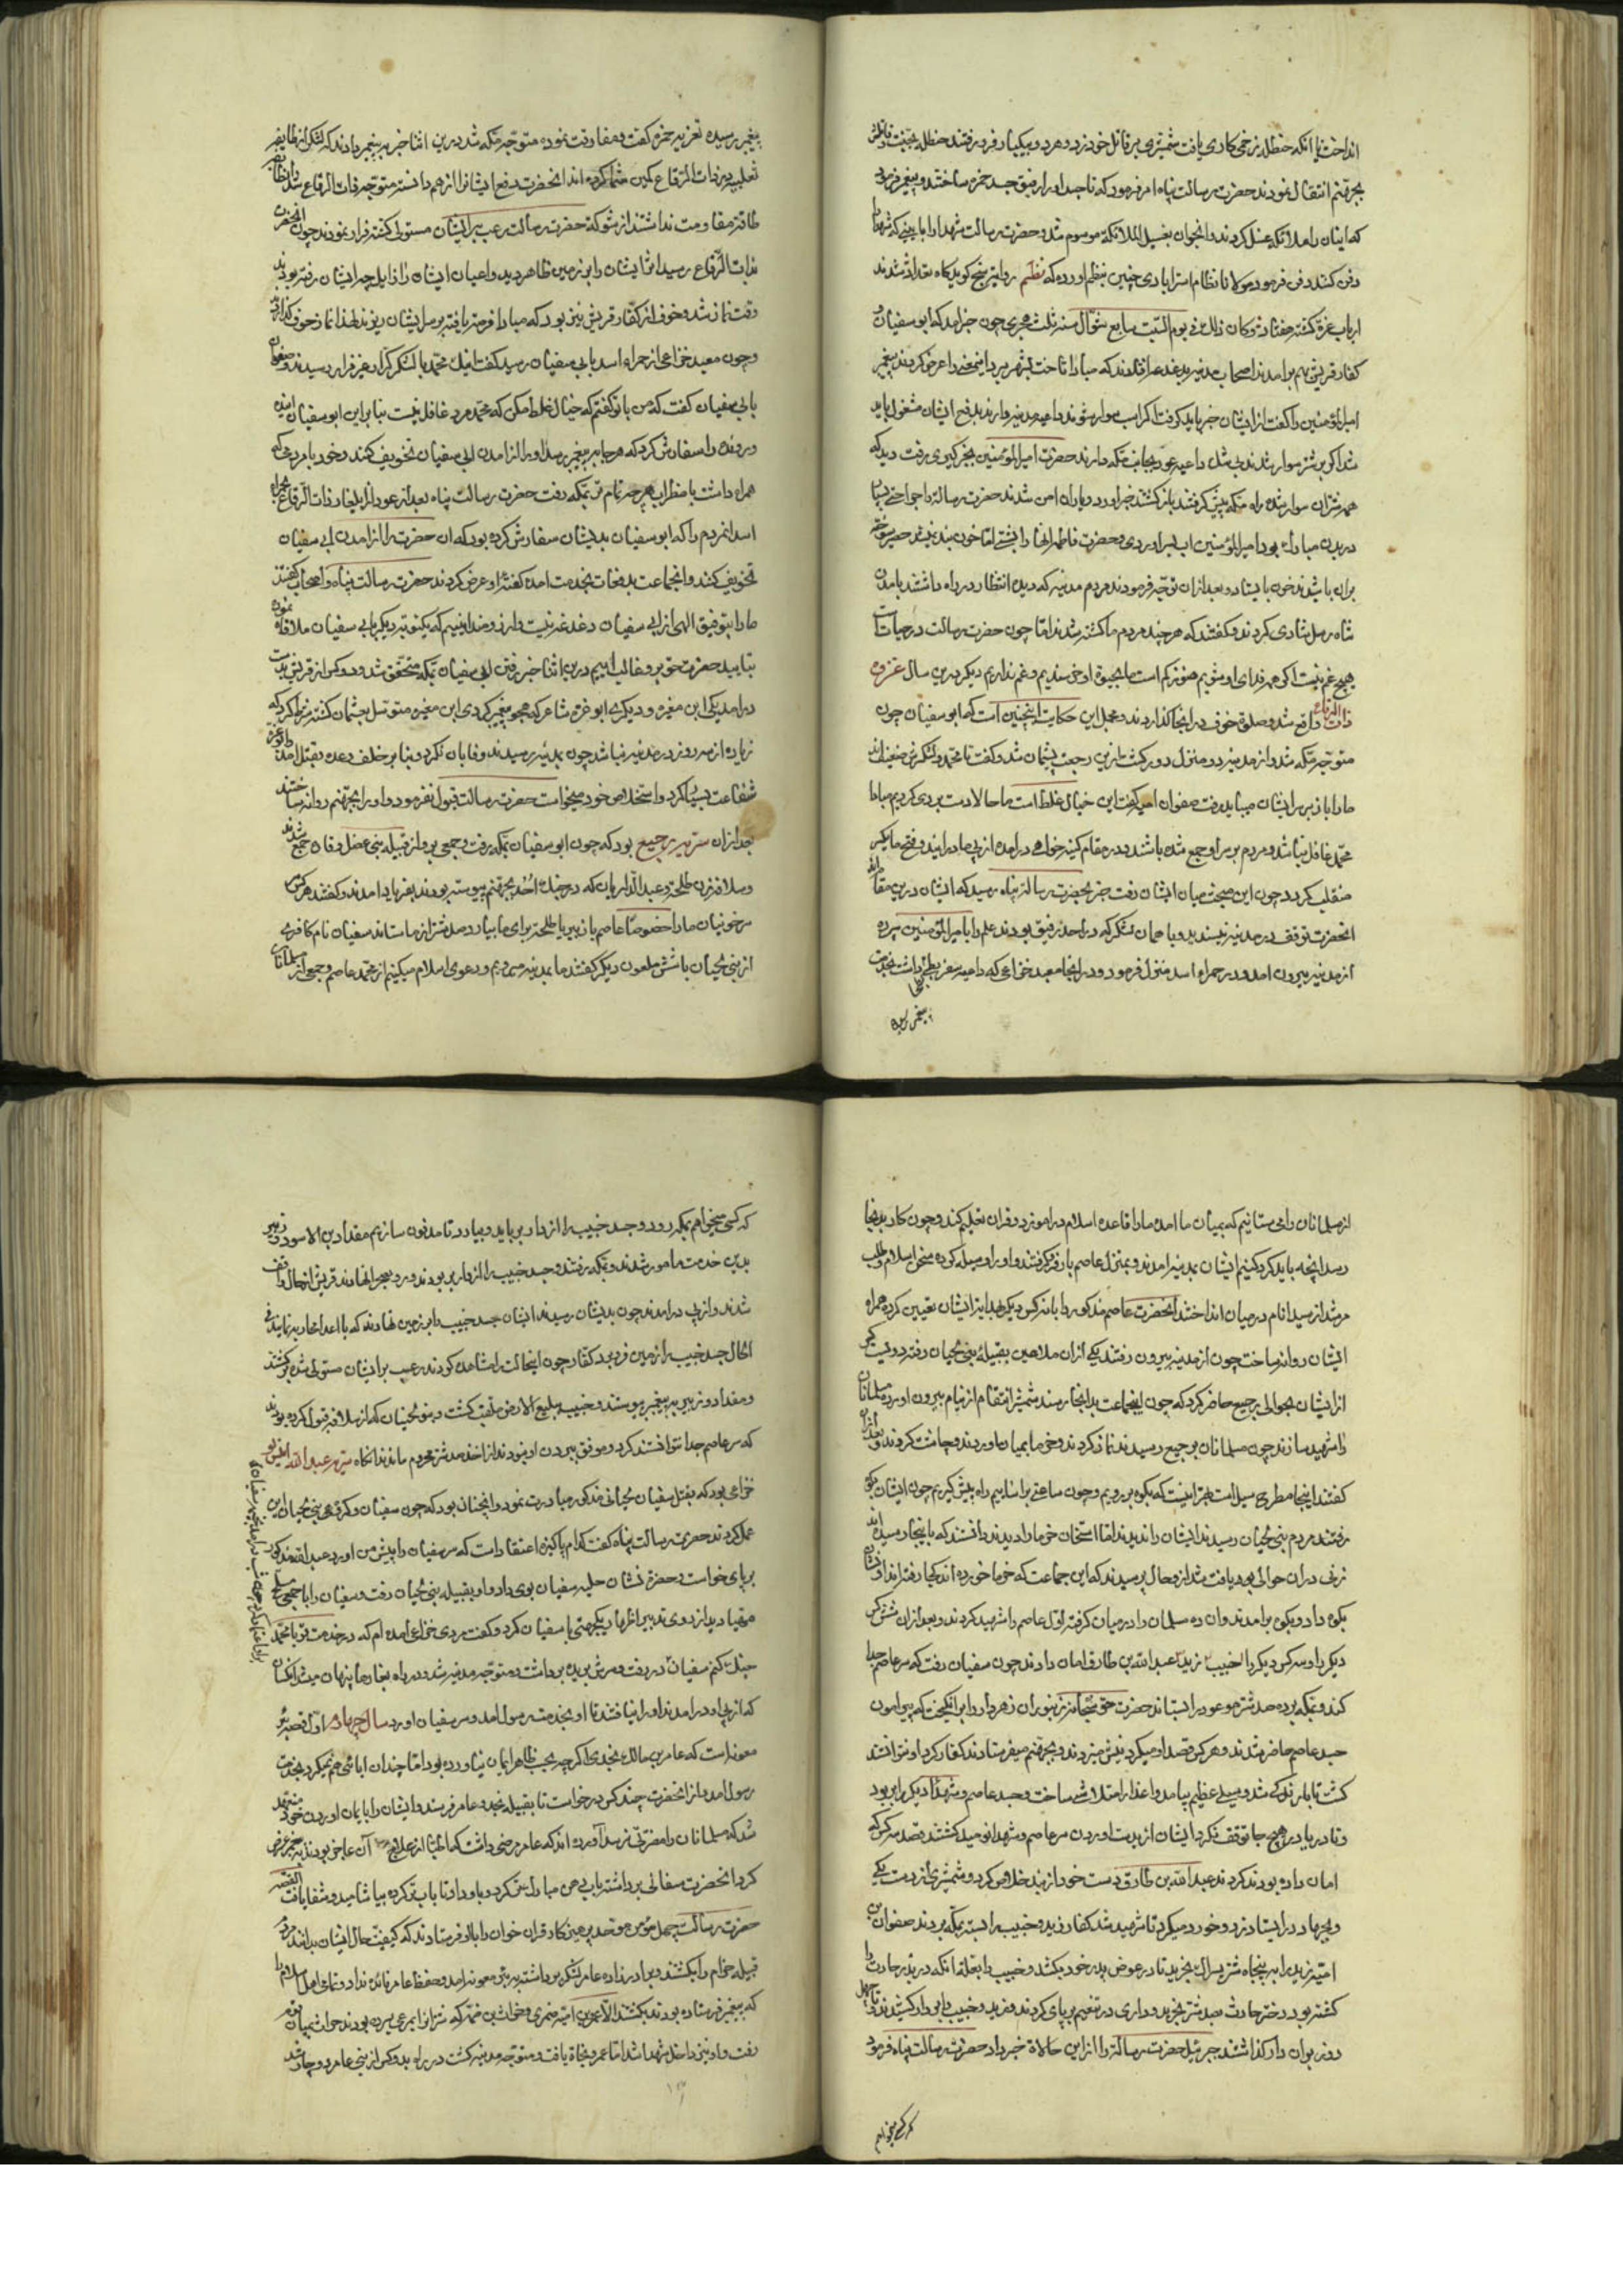 انداخت با انکه حنظله زخمی کاری یافت شمشیری بر قاتل خود زد و هر دو بیکبار فرو رفتند حنظله بجنت و قاتلش
بجهنم انتقال نمودند حضرت رسالت پناه امر فرمود که تا جسد او را رفیق جسد حمزه ساختند و پیغمبر فرمود
که ایشان را ملائکه غسل کردند و انجوان بغسیل الملائکة موسوم شد و حضرت رسالت شهدا را با
دفن کنند دفن فرمود مولانا نظام استرابادی چنین بنظم اورده که نظم
ارباب غزة کشته هفتاد و کان ذلک فی یوم السبت سابع شوال سنه ثلث هجری چون خبر امد که ابو سفیان و
کفار قریش بهم برامدند اصحاب مدینه بدغدغه افتادند که مبادا تاخت بشهر برد این معنی را عرض کردند پیغمبر
امیر المؤمنین را گفت از ایشان خبر باید گرفت اگر اسب سوار شوند داعیه مدینه دارند بدفع ایشان مشغول باید
شد اگر بر شتر سوار شدند بی شک داعیه عود بجانب مکه دارند حضرت امیر المؤمنین بخبرگیری رفت دید که
همه شتران سوار شده راه مکه پیش گرفتند بازگشتند خبر اورد و یاران امن شدند حضرت رسالة را جراحتی بسیار
در بدن مبارک بود امیر المؤمنین اب بسر اوردی و حضرت فاطمه انها را بشستی اما خون بند نمیشد حصیر سوخته
بران باشیدند خون بایستاد و بعد از ان توجه فرمودند مردم مدینه که دیده انتظار در راه داشتند بامدن
شاه رسل شادی کردند و گفتند که هر چند مردم ما کشته شدند اما چون حضرت رسالت در حیات است
هیچ غم نیست اگر همه فدای او شویم هنوز کم است ما بحیوة او خرسندیم و غم نداریم دیگر درین سال غزوه
ذات الرقاع واقع شد و صلوة خوف در انجا گذاردند و مجمل این حکایت اینچنین است که ابو سفیان چون
متوجه مکه شد و از مدینه دو منزل دور گشت ازین رجعت پشیمان شد و گفت تا محمد و لشکرش ضعیف اند
ما را باز بر سر ایشان میباید رفت صفوان امیه گفت این خیال غلط است ما حالا دست بردی کردیم مبادا
محمد غافل نباشد و مردم بر سر او جمع شده باشند و در مقام کینه خواهی درامده از پی ما در ایند و فتح ما بکسر
منقلب گردد چون این صحبت میان ایشان رفت خبر بحضرت رسالة پناه رسید که ایشان درین مقام اند
انحضرت توقف در مدینه نپسندید و با همان لشکر که در احد رفیق بودند علم را بامیر المؤمنین سپرده
از مدینه بیرون امد و در حمراء اسد منزل فرمود و در انجا معبد خزاعی که داعیه سفر بطحا داشت بخدمت
پیغمبر رسیده
پیغمبر رسیده تعزیه حمزه گفت و مفارقت نموده متوجه مکه شد درین اثنا خبر به پیغمبر دادند که لشکر از طایفه
ثعلبیه در ذات الرقاع کمین شما کرده اند انحضرت دفع ایشانرا لازم دانسته متوجه ذات الرقاع شد
طاقت مقاومت نداشتند از شوکة حضرت رسالت رعب بر ایشان مستولی گشته فرار نمودند چون انحضرت
بذات الرقاع رسید اثر ایشان را بر زمین ظاهر دید و اعیان ایشان
وقت نماز شد و خوف از کفار قریش نیز بود که مبادا فرصة یافته بر سر ایشان ریزند لهذا نماز خوف گذارد
و چون معبد خزاعی از حمراء اسد بابی سفیان رسید گفت اینک محمد با لشکر کرار غیر فرار رسیدند و صفوان
بابی سفیان گفت که من با تو گفتم که خیال غلط مکن که محمد مرد غافل نیست بنا براین ابو سفیان
را سفارش کرد که هر جا به پیغمبر رسد او را از امدن ابی سفیان تخویف کنند و خود با مردمی که
همراه داشت باضطراب هر چه تمام تر بمکه رفت حضرت رسالت پناه بعد از عود از ایلغار ذات الرقاع بحمراء
اسد انمردم را که ابو سفیان بدیشان سفارش کرده بود که ان حضرت را از امدن ابی سفیان
تخویف کنند و انجماعت بدفعات بخدمت امده گفته او عرض کردند حضرت رسالت پناه و اصحاب گفتند
ما را بتوفیق الهی از ابی سفیان دغدغه نیست و ارزومند انیم که یکنوبه دیگر بابی سفیان ملاقات نموده
بتایید حضرت حق برو غالب اییم درین اثنا خبر رفتن ابی سفیان بمکه متحقق شد و دو کس از قریش بدست
درامد یکی ابن مغیره و دیگری ابو غره شاعر که هجو پیغمبر کردی ابن مغیره متوسل بعثمان گشته شرط کرد که
زیاده از سه روز در مدینه نباشد چون بمدینه رسیدند وفا بان نکرد و بنا بر خلف وعده بقتل امد و ابو غره
شفاعت بسیار کرد و استخلاص خود میخواست حضرت رسالت قبول نفرمود و او را بجهنم روانه ساختند
بعد از ان سریه رجیع بود که چون ابو سفیان بمکه رفت و جمعی برو از قبیله بنی عضل و قاره جمع شدند
و سلافه زن طلحة و عبد الدار یان که در جنک احد بجهنم پیوسته بودند بفریاد امدند و گفتند هر کس
سر خونیان ما را خصوصا عاصم یا زبیر یا طلحة برای ما بیارد صد شتر از ما ستاند سفیان نام کافری
از بنی لحیان با شش ملعون دیگر گفتند ما بمدینه میرویم و دعوی اسلام میکنیم از محمد عاصم و جمعی از مسلمانان
از مسلمانان را می ستانیم که بمیان ما امده ما را قاعده اسلام در اموزد و قران تعلیم کند و چون کار بدینجا
رسد انچه باید کرد کنیم ایشان بمدینه امدند و بمنزل عاصم بار فرو گرفتند و او را وسیله کرده سخن اسلام و طلب
مرشد از سید انام در میان انداختند انحضرت عاصم مذکور را با نه کس دیگر بهدایة ایشان تعیین کرده همراه
ایشان روانه ساخت چون از مدینه بیرون رفتند یکی از ان ملاعین بقبیله بنی لحیان رفته دویست کس
از ایشان بحوالی رجیع حاضر کرد که چون اینجماعت بدانجا رسند شمشیر انتقام از نیام بیرون اورده مسلمانان
را شهید سازند چون مسلمانان برجیع رسیدند نماز کردند و خرما بمیان اوردند و چاشت کردند و بعد از ان
گفتند اینجا مطرح سیل است بهتر انست که بکوه برویم و چون ساعتی براساییم راه پیش گیریم چون ایشان بکوه
رفتند مردم بنی لحیان رسیدند ایشان را ندیدند اما استخوان خرما را دیدند دانستند که باینجا رسیده اند
زنی در ان حوالی بود یافت شد از و حال پرسیدند که این جماعت که خرما خورده اند کجا رفته اند او نشان
بکوه داد و بکوه برامدند و ان ده مسلمان را در میان گرفته اول عاصم را شهید کردند و بعد از ان شش کس
دیگر را و سه کس دیگر را خبیب زید عبد الله بن طارق امان دادند چون سفیان رفت که سر عاصم جدا
کند و بمکه برده صد شتر موعود را بستاند حضرت حق سبحانه زنبوران زهردار را برانگیخت که پیرامون
جسد عاصم حاضر شدند و هر کس قصد او میکرد نیش میزدند و بجهنم میفرستادند کفار کرد او نتوانستند
گشت تا باران شد و سیلی عظیم بیامد و اعدا را متلاشی ساخت و جسد عاصم و شهداء دیگر را بربود
و تا دریا در هیچ جا توقف نکرد ایشان از بدست اوردن سر عاصم و شهدا نومید گشتند قصد سه کس که
امان داده بودند کردند عبد الله بن طارق دست خود از بند خلاص کرد و شمشیری از دست یکی
و بجهاد در ایستاد زد و خورد میکرد تا شهید شد کفار زید و خبیب را بسته بمکه بردند صفوان بن
امیه زید را به پنجاه شتر بخرید تا در عوض پدر خود بکشد و خبیب را بعلة انکه در بدر حارث را
کشته بود دختر حارث بصد شتر بخرید و داری در تنعیم بر پای کردند و زید و خبیب را بر دار کشیدند و تا چهل
روز بر ان دار گذاشتند جبرئیل حضرت رسالة را از این حالات خبر داد حضرت رسالت پناه فرمود
که کسی میخواهم
که کسی میخواهم بمکه رود و جسد خبیب را از دار برباید و بیاورد تا مدفون سازیم مقداد بن الاسود و زبیر
بدین خدمت مامور شدند و بمکه رفتند و جسد خبیب را از دار بربودند و رو بهجر نهادند قریش از حال واقف
شدند و از پی درامدند چون بدیشان رسیدند ایشان جسد خبیب را بر زمین نهادند که با اعدا محاربه نمایند فی
الحال جسد خبیب را زمین فرو برد کفار چون اینحالت را مشاهده کردند رعب بر ایشان مستولی شده برگشتند
و مقداد و زبیر به پیغمبر پیوستند و خبیب ببلیع الارض ملقب گشت و بنو لحیان که از سلافه قبول کرده بودند
که سر عاصم جدا نتوانستند کرد و موفق ببردن او نبودند از اخذ صد شتر محروم ماندند انگاه سریه عبد الله انیس
خزاعی بود که بقتل سفیان لحیانی مذکور مبادرت نمود و انچنان بود که چون سفیان و گروهی بنی لحیان این
عمل کردند حضرت رسالت پناه گفت کدام پاکیزه اعتقاد است که سر سفیان را پیش من اورد عبد الله مذکور
بر پای خواست و حضرة نشان حلیه سفیان بوی داد و او بقبیله بنی لحیان رفت و سفیان را با جمعی مسلح
مهیا دید از روی تدبیر اظهار یکجهتی با سفیان کرد و گفت مردی خزاعی امده ام که در خدمت تو با محمد
جنک کنم سفیان در رفت و سرش بریده برداشت و متوجه مدینه شد و در راه بغارها پنهان میشد کسان
که از پی او درامدند او را نیافتند تا او بخدمت رسول امد و سر سفیان اورد سال چهارم اول قصه بئر
معونه است که عامر بن مالک نجدی اگر چه بحسب ظاهر ایمان نیاورده بود اما چندان ابائی هم نمیکرد بخدمت
رسول امد و از انحضرت چند کس درخواست تا بقبیله نجد و عامر فرستد و ایشان را بایمان اوردن خود متعهد
شد که مسلمانان را مضرتی نرسد آورده اند که عامر مرضی داشت که اطبا از علاج آن عاجز بودند به پیغمبر عرض
کرد انحضرت سفالی برداشته باب دهن مبارک تر کرد و باو داد تا باب تر کرده بیاشامید و شفا یافت القصه
حضرت رسالت چهل مؤمن موحد پرهیزکار قران خوان را با او فرستادند که کیفیت حال ایشان بدانند مردم
قبیله حرام را بکشتند و برادر زاده عامر لشکر برداشته به بئر معونه امد و حفظ عامر فائده نداد و تمامی اهل اسلام را
که پیغمبر فرستاده بود تند بکشتند الا عمرو بن امیه ضمری و حارث بن صمه که شتران را بمرعی برده بودند حارث بمیان قوم
رفت و او نیز داخل شهدا شد اما عمرو نجاة یافت و متوجه مدینه گشت در راه بدو کس از بنی عامر دو چار شد